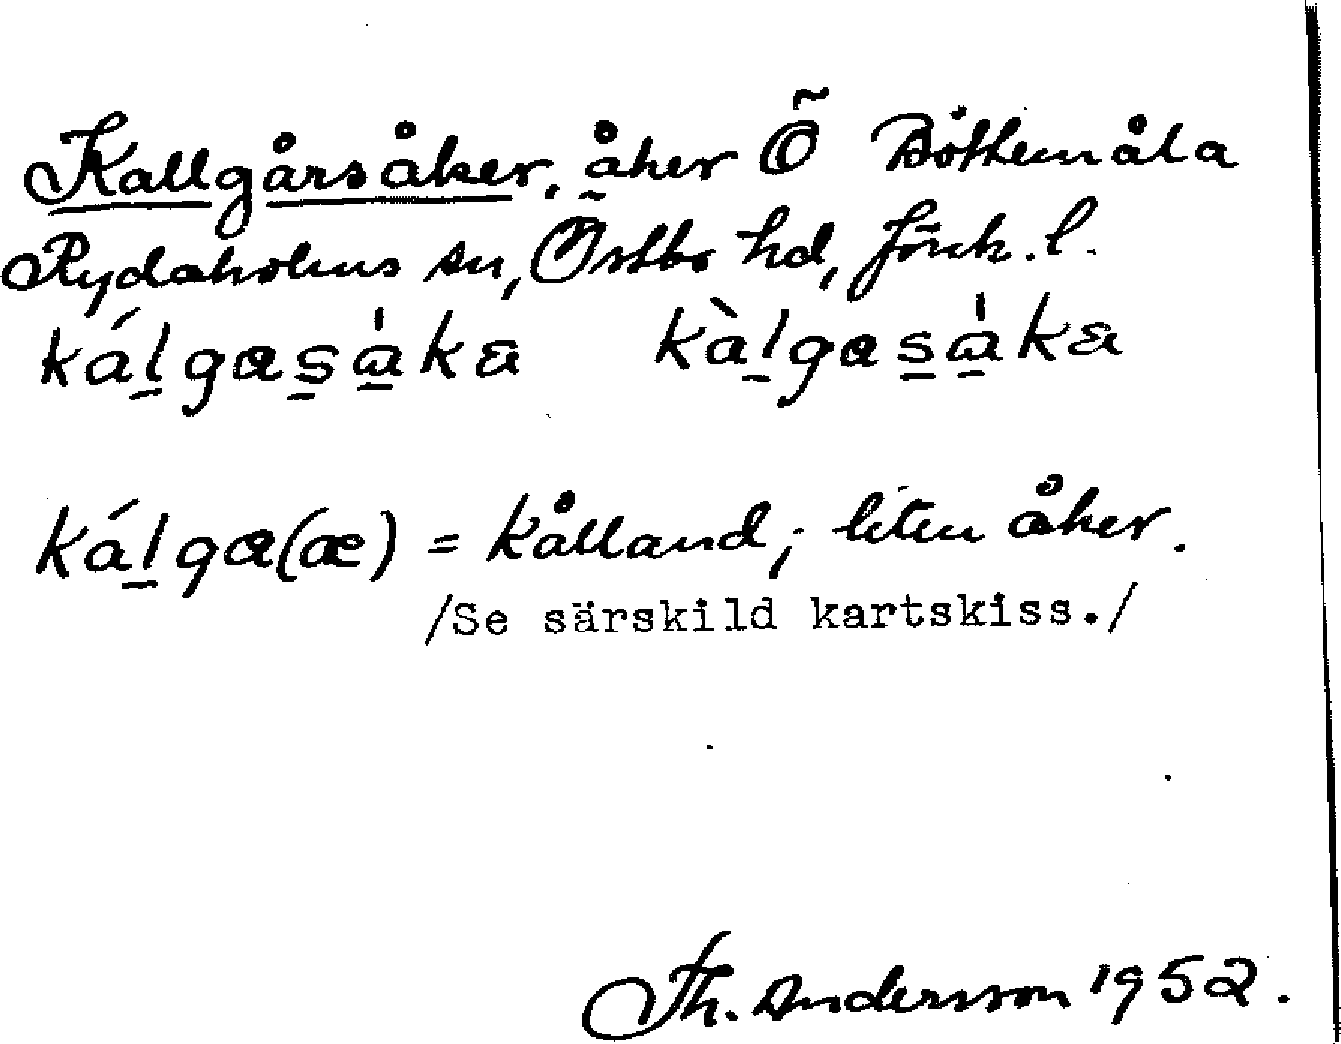 Kallgårsåker, åker Ö Böthemåla
Rydaholms sn, Östbo hd, Jönk. l.
káḻgɑs̱à̱kɛ kàḻgɑs̱à̱kɛ
káḻgɑ(æ) = kålland; liten åker.
/Se särskild kartskiss./
Th. Andersson 1952.